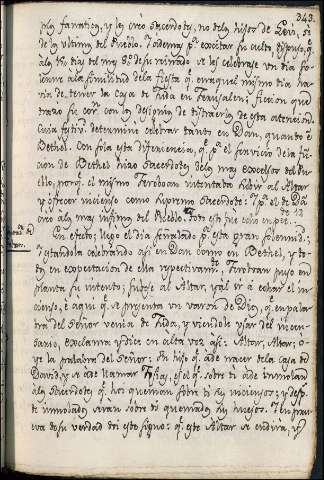 343.
más fanatico, y les crio Sacerdotes, no delos hijos de Levi, si
de lo ultimo del Pueblo. Todavia p.ª excitar su culto dispuso, q.
alos 15 dias del mes 8.º de su reinado se les celebrase un dia so-
lemne ala similitud de la fiesta q. en aquel mismo dia ha-
via de tener la Casa de Juda en Jerusalen; ficcion que
trazo su cor.n con los designios de distraerlos de esta atencion.
Cuia festiv.d determinó celebrar tanto en Dan, quanto en
Bethel. Con sola esta diferiencia, q. p.ª el servicio de la fic-
cion de Bethel hizo Sacerdotes delos mas excelsos del Pue-
blo, porq. el mismo Jeroboan intentaba subir al Altar
y ofrecer incienso como supremo Sacerdote: y p.ª el de Dan
creó alos mas infimos del Pueblo.
En efecto; llegó el dia señalado p.ª esta gran solemnid.d;
y estandola celebrando asi en Dan como en Bethel, y to-
do en expectacion de ella respectivam.te, Jeroboan puso en
planta su intento; subese al Altar, y al ir á echar el in-
cienso, é aqui q. se presenta un varon de Dios, q. en pala-
bra del Señor venia de Juda, y viendole usar del incen-
sario, exclama y dice en alta voz asi: Altar, Altar; o-
ye la palabra del Señor: Un hijo q. ade nacer dela Casa de
David, y se ade llamar Josias, es el q. sobre ti ade inmolar
alos Sacerdotes q. hoi queman sobre ti sus inciensos; y desp.s
de inmolados seran sobre ti quemados sus huesos. Y en prue-
va de su verdad doi este signo: q. este Altar se endirá, y